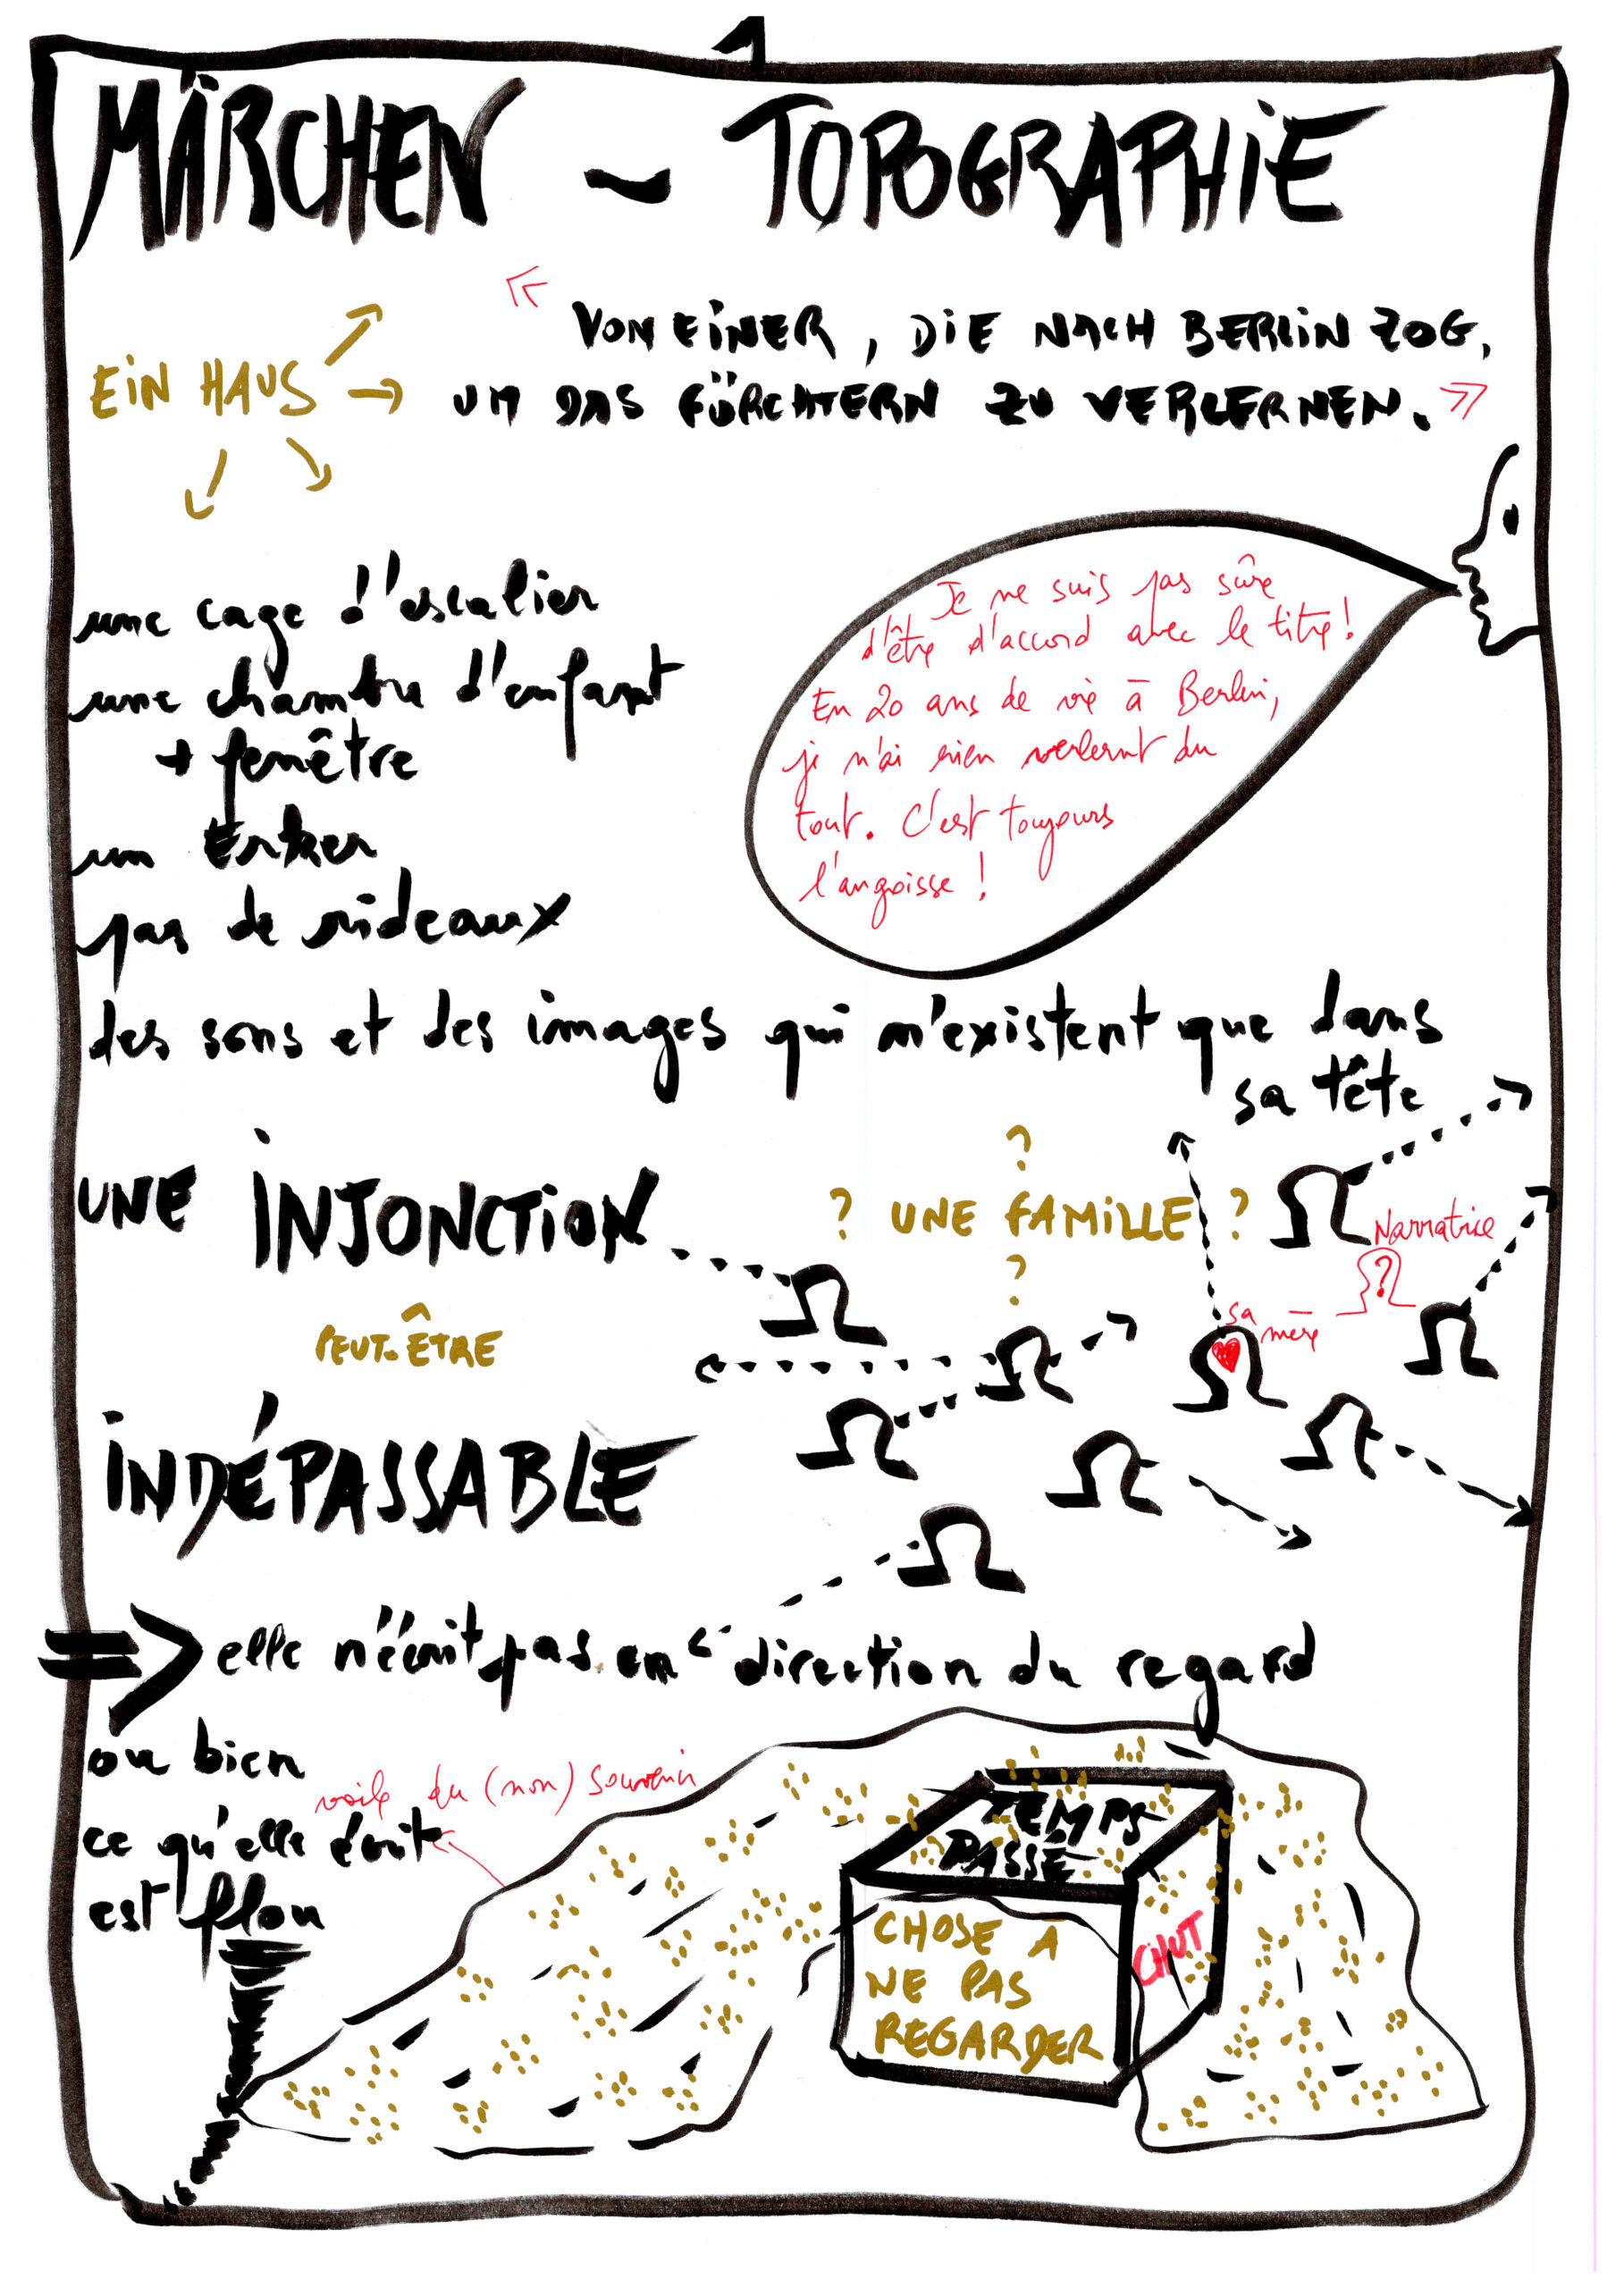 1
MÄRCHEN - TOPOGRAPHIE
« VON EINER, DIE NACH BERLIN ZOG,
EIN HAUS → UM DAS FÜRCHTERN ZU VERLERNEN. »
une cage d'escalier
une chambre d'enfant
+ fenêtre
un Erker
pas de rideaux
Je ne suis pas sûre
d'être d'accord avec le titre !
En 20 ans de vie à Berlin,
je n'ai rien verlernt du
tout. C'est toujours
l'angoisse !
des sons et des images qui n'existent que dans
sa tête
UNE INJONCTION
?
? UNE FAMILLE ?
?
Narratrice
?
sa mère
PEUT-ÊTRE
INDÉPASSABLE
=> elle n'écrit pas en direction du regard
ou bien
ce qu'elle écrit
est flou
voile du (non) souvenir
TEMPS
PASSÉ
CHOSE À
NE PAS
REGARDER
CHUT